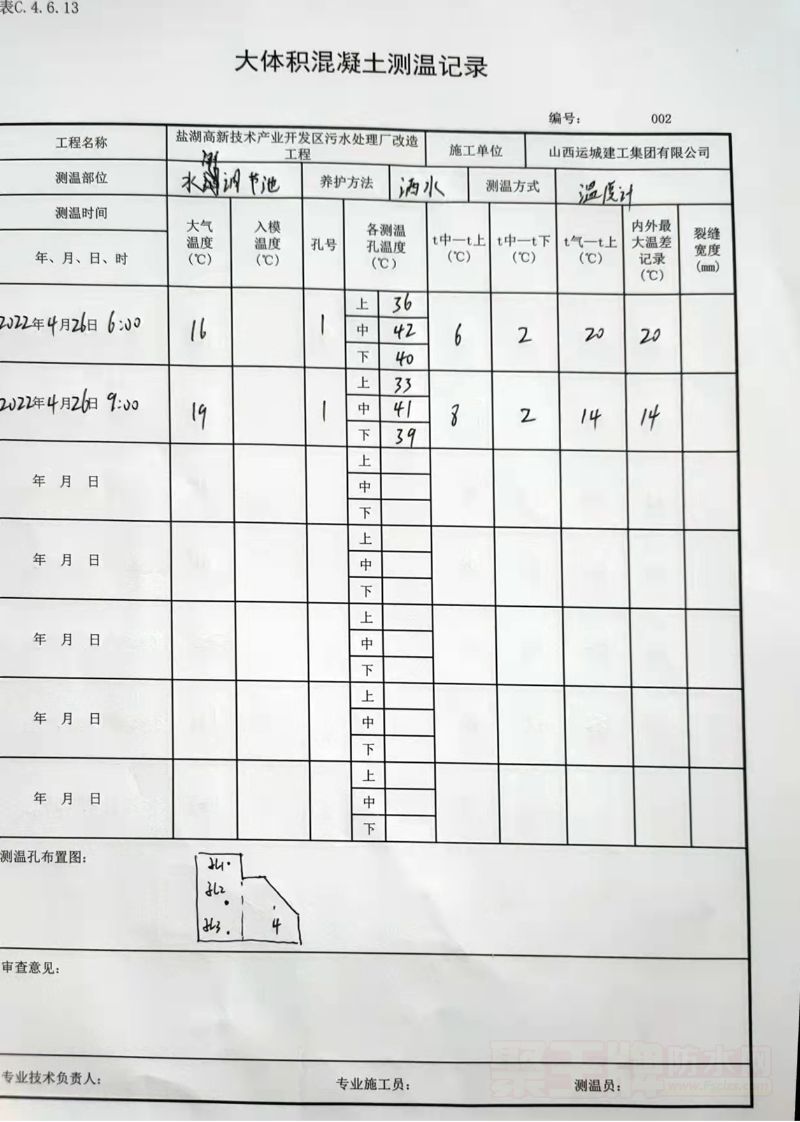 表C.4.6.13
大体积混凝土测温记录
编号: 002
工程名称 盐湖高新技术产业开发区污水处理厂改造工程 施工单位 山西运城建工集团有限公司
测温部位 调节池 养护方法 洒水 测温方式 温度计
测温时间
年、月、日、时 大气温度(℃) 入模温度(℃) 孔号 各测温孔温度(℃) t中—t上(℃) t中—t下(℃) t气—t上(℃) 内外最大温差记录(℃) 裂缝宽度(mm)
2022年4月26日 6:00 16 1 上 36
中 42 6 2 20 20
下 40
2022年4月26日 9:00 19 1 上 33
中 41 8 2 14 14
下 39
上
年 月 日 中
下
上
年 月 日 中
下
上
年 月 日 中
下
上
年 月 日 中
下
上
年 月 日 中
下
测温孔布置图:
孔1
孔2
孔3 4
审查意见:
专业技术负责人: 专业施工员: 测温员:
防水网